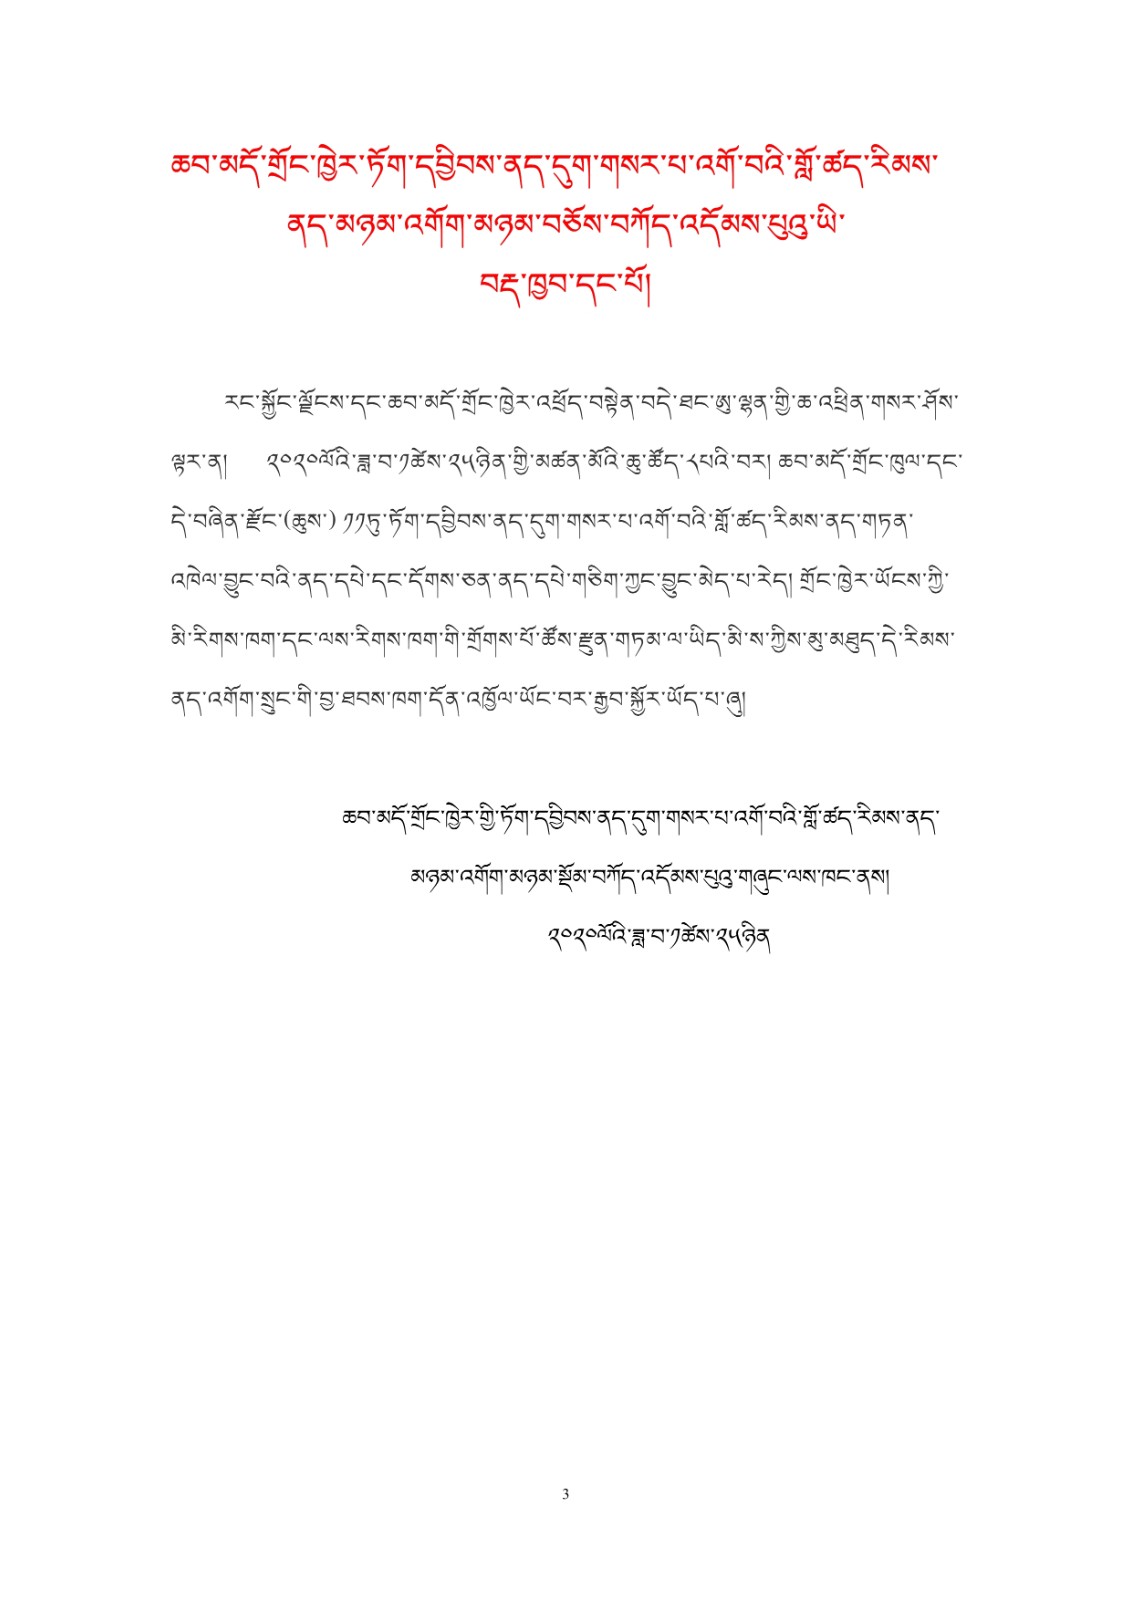 ཆབ་མདོ་གྲོང་ཁྱེར་ཏོག་དབྱིབས་ནད་དུག་གསར་པ་འགོ་བའི་གློ་ཚད་རིམས་
ནད་མཉམ་འགོག་མཉམ་བཅོས་བཀོད་འདོམས་པུའུ་ཡི་
བརྡ་ཁྱབ་དང་པོ།
རང་སྐྱོང་ལྗོངས་དང་ཆབ་མདོ་གྲོང་ཁྱེར་འཕྲོད་བསྟེན་བདེ་ཐང་ཨུ་ལྷན་གྱི་ཆ་འཕྲིན་གསར་ཤོས་
ལྟར་ན། ༢༠༢༠ལོའི་ཟླ་བ་༡ཚེས་༢༥ཉིན་གྱི་མཚན་མོའི་ཆུ་ཚོད་༨པའི་བར། ཆབ་མདོ་གྲོང་ཁུལ་དང་
དེ་བཞིན་རྫོང་(ཆུས་) ༡༡ཏུ་ཏོག་དབྱིབས་ནད་དུག་གསར་པ་འགོ་བའི་གློ་ཚད་རིམས་ནད་གཏན་
འཁེལ་བྱུང་བའི་ནད་དཔེ་དང་དོགས་ཅན་ནད་དཔེ་གཅིག་ཀྱང་བྱུང་མེད་པ་རེད། གྲོང་ཁྱེར་ཡོངས་ཀྱི་
མི་རིགས་ཁག་དང་ལས་རིགས་ཁག་གི་གྲོགས་པོ་ཚོས་རྫུན་གཏམ་ལ་ཡིད་མི་ས་ཀྱིས་མུ་མཐུད་དེ་རིམས་
ནད་འགོག་སྲུང་གི་བྱ་ཐབས་ཁག་དོན་འཁྱོལ་ཡོང་བར་རྒྱབ་སྐྱོར་ཡོད་པ་ཞུ།
ཆབ་མདོ་གྲོང་ཁྱེར་གྱི་ཏོག་དབྱིབས་ནད་དུག་གསར་པ་འགོ་བའི་གློ་ཚད་རིམས་ནད་
མཉམ་འགོག་མཉམ་སྡོམ་བཀོད་འདོམས་པུའུ་གཞུང་ལས་ཁང་ནས།
༢༠༢༠ལོའི་ཟླ་བ་༡ཚེས་༢༥ཉིན
3